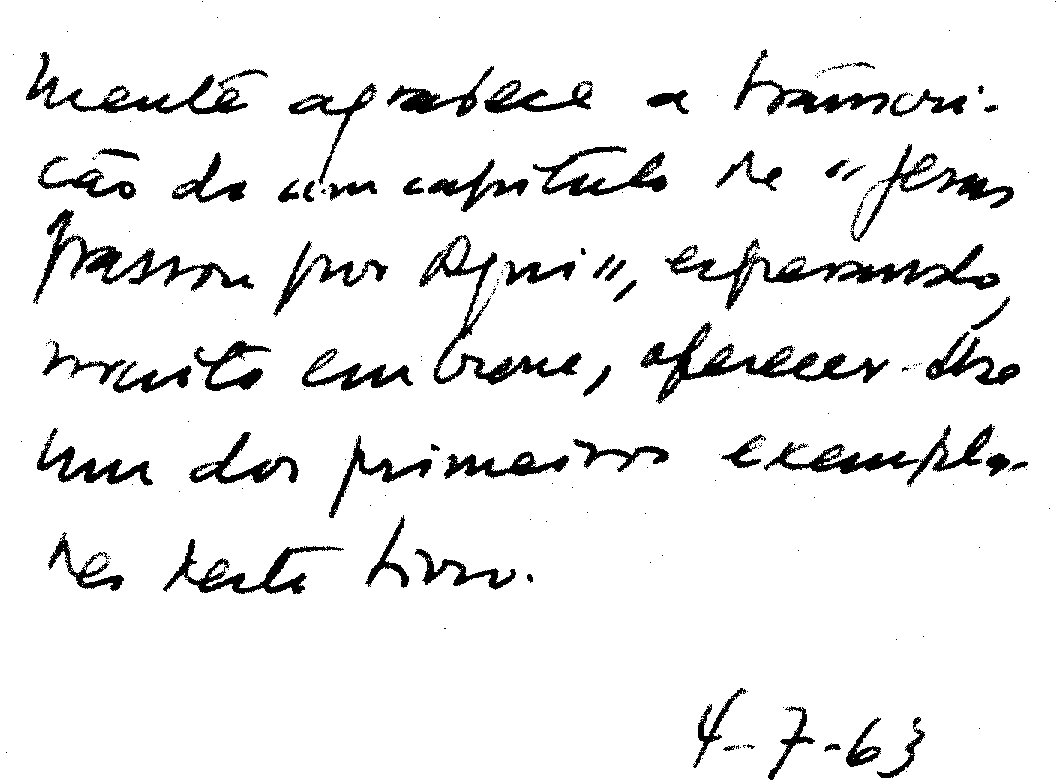 mente agradece a transcri-
ção de um capítulo de "Jesus
passou por Aqui", esperando,
muito em breve, oferecer-lhe
um dos primeiros exempla-
res deste livro.
4-7-63